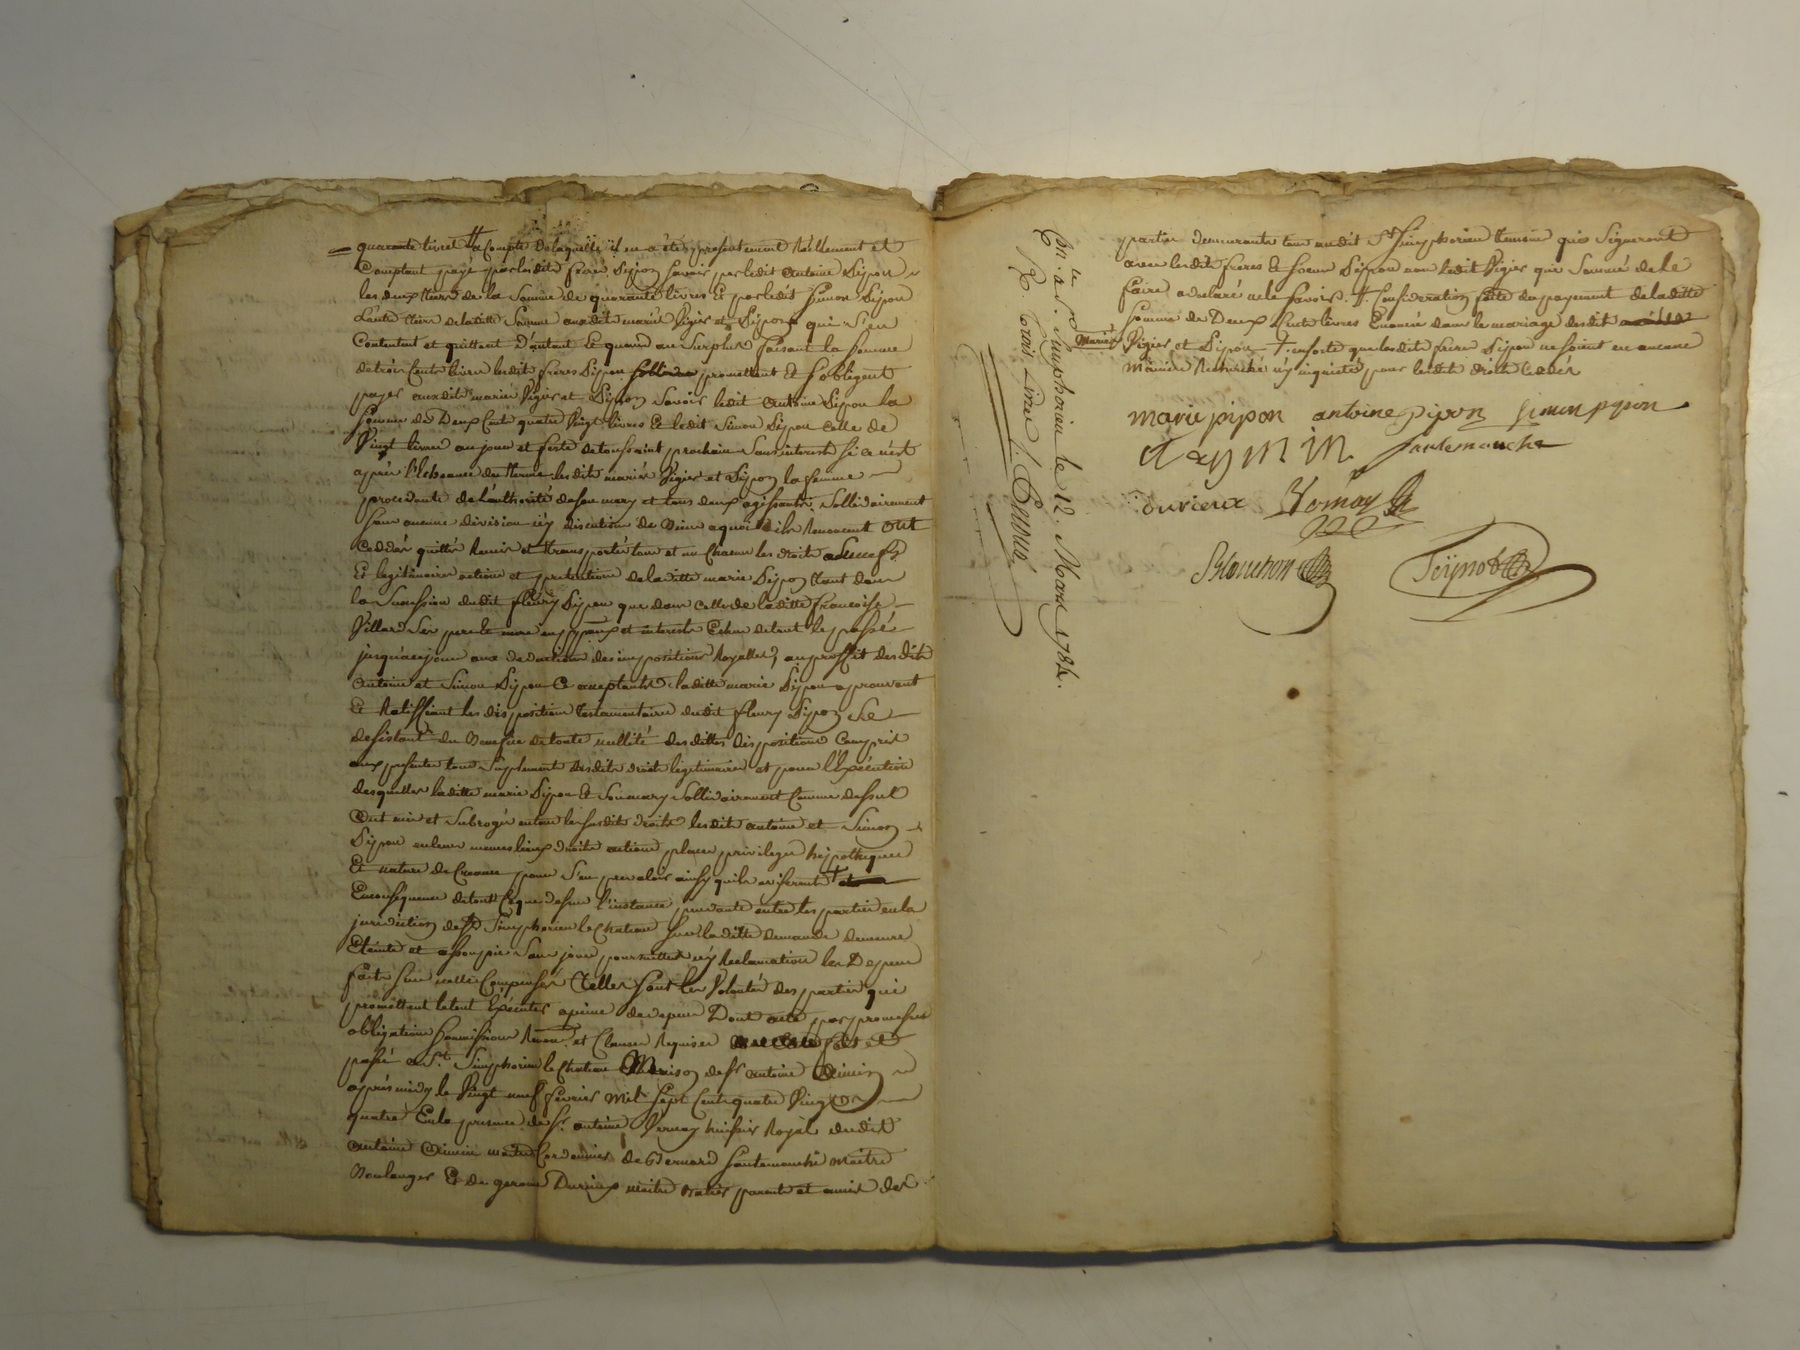 quarante livres # a Compte de laquelle il en a été presentement Réellement et
Comptant payé par lesdits freres Pipon savoir par ledit antoine Pipon
les deux tiers de la Somme de quarante livres Et par ledit Simon Pipon
L'autre tiers de laditte Somme auxdits mariés Vigier et Pipon qui s'en
Contentent et quittent D'autant Et quand au Surplus faisant la Somme
de trois Cents livres lesdits freres Pipon promettent Et s'obligent
payer auxdits mariés Vigier et Pipon Savoir ledit Antoine Pipon la
Somme de Deux Cents quatre Vingt livres Et ledit Simon Pipon Celle de
Vingt livres au jour et feste de toussaint prochain Sans interest si ce n'est
après l'Echeance du terme lesdits mariés Vigier et Pipon la femme
procedante de L'authorité de son mary et tous deux agissants Sollidairement
sans aucune division n'y discution de biens a quoi ils Renoncent ont
Ceddés quittés Remis et transportés tous et un Chacun les droits
Et legitimaires actions et pretentions de laditte marie Pipon tant dans
la Succession dudit fleury Pipon que dans Celle de laditte francoise
Villard Ses pere et mere en et interests Echus de tout le passé
jusqu'aujour aux deductions des impositions Royalles, au proffit desdits
Antoine et Simon Pipon Ce acceptants laditte marie Pipon approuvant
Et Ratiffiant les dispositions testamentaires dudit fleury Pipon Se
desistant du Benefice de toute nullité desdittes dispositions Compris
aux presentes tous Suplement desdits droits legitimaires et pour l'Exécution
desquelles laditte marie Pipon Et Son mary Sollidairement Comme dessus
Ont mis et Subrogés en tous les susdits droits lesdits antoine et Simon
Pipon en leurs mêmes lieux droits actions places privileges hypotheques
Et nature de Creance pour S'en prevaloir ainsy qu'ils aviseront †
Enconséquence de tout Ce que dessus l'instance pendante entre les parties en la
jurisdiction de St Simphorien le Chateau Sur laditte demande demeure
Eteinte et assoupie Sans jours poursuittes n'y Reclamation les Depens
faits sur icelle Compensés telles sont les Volontés des parties qui
promettent le tout Exécuter a peine de depens Dont acte par promesses
obligations soumissions Renon. et Clauses Requises fait et
passé a St. Simphorien le Chateau Maison de Sr antoine
après midy le Vingt neuf fevrier Mil Sept Cents quatre Vingt
quatre En la presence de Sr. antoine Vernay huissier Royal dudit
antoine maitre Cordonnier de Bernard Sautemouche maitre
Boulanger Et de gerome Durieux maitre parents et amis des
Con. a St. Simphorien le 12. Mars 1784.
R. trois Livres S.
parties demeurants tous audit St Simphorien temoins qui Signeront
avec lesdits freres Et soeur Pipon non ledit Vigier qui Sommé de le
faire a declaré ne le Savoir. #. Consideration faite du payement de laditte
Somme de Deux Cents livres Enoncée dans le mariage desdits
Mariés
Vigier et Pipon †. ensorte que lesdits freres Pipon ne soient en aucune
Maniere Recherché n'y inquietés pour lesdits droits Cedés
marie pipon antoine pipon Simon pipon
Sautemouche
Durieux Vernay
Blanchon Peyssot